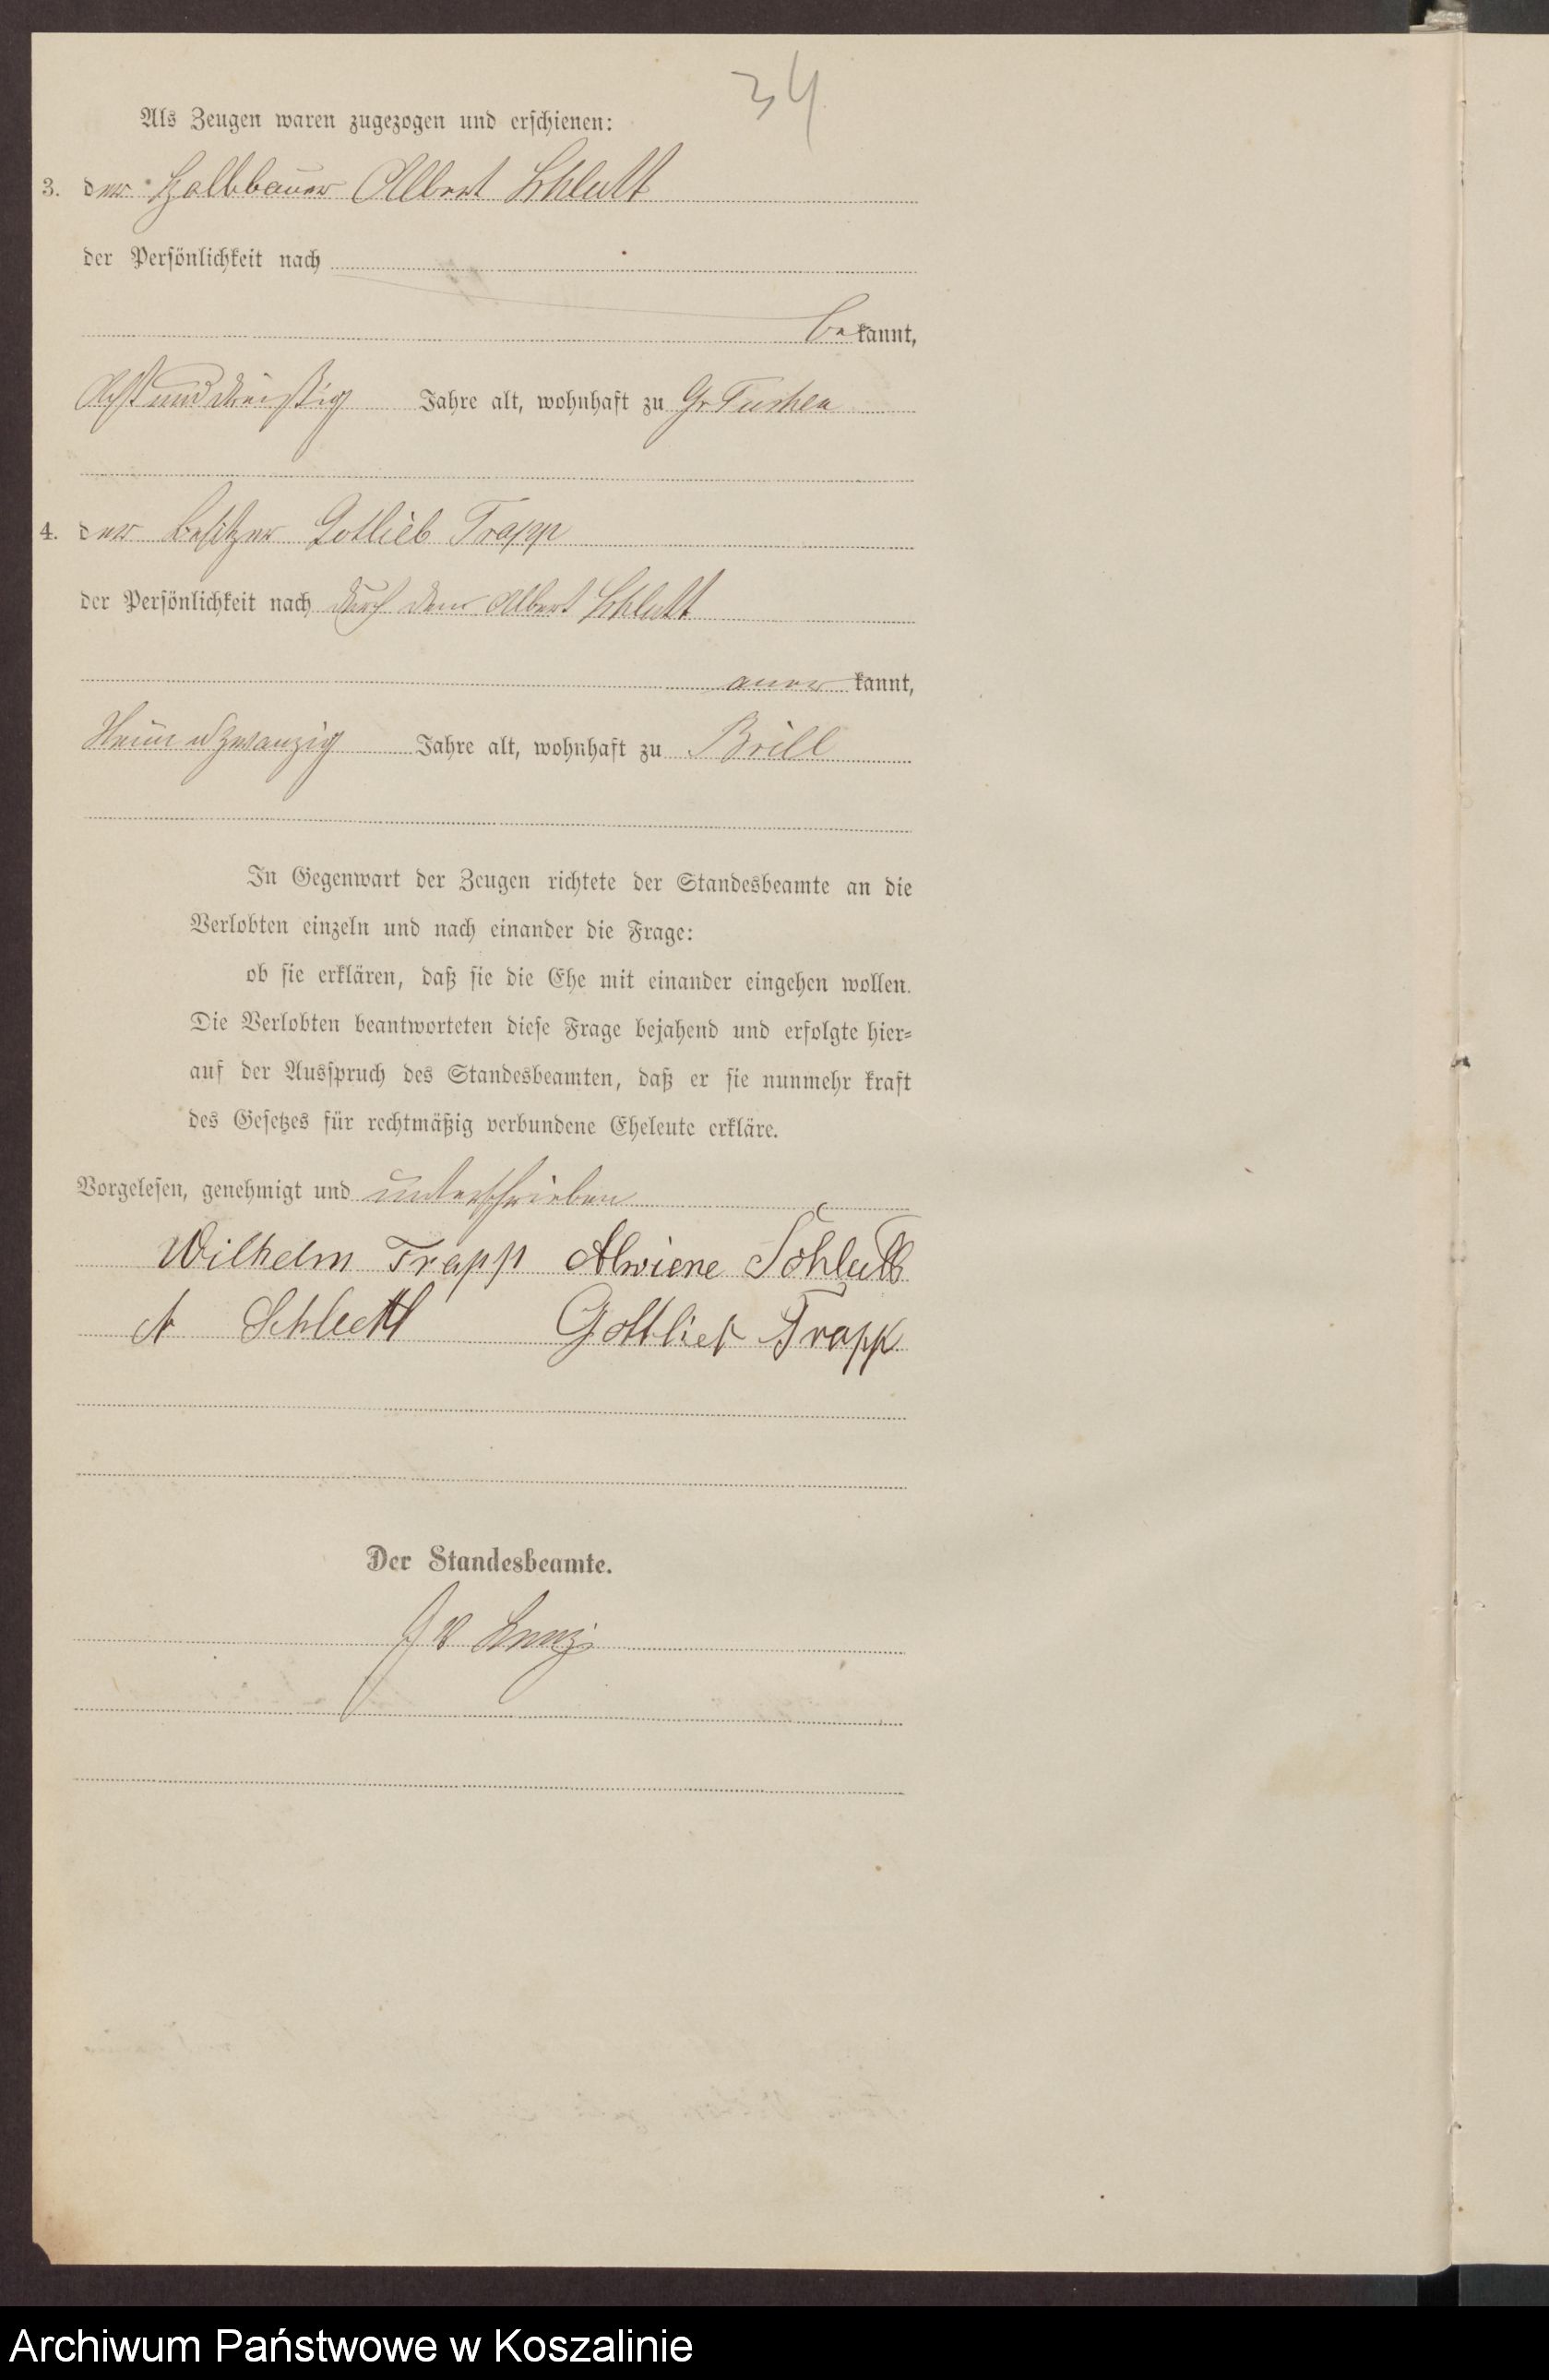 34
Als Zeugen waren zugezogen und erschienen:
3. der Halbbauer Albert Schlutt
der Persönlichkeit nach
bekannt,
Acht und dreißig Jahre alt, wohnhaft zu Gr Tuchen
4. der Besitzer Gotlieb Trapp
der Persönlichkeit nach durch den Albert Schlutt
anerkannt,
Neun u zwanzig Jahre alt, wohnhaft zu
In Gegenwart der Zeugen richtete der Standesbeamte an die
Verlobten einzeln und nach einander die Frage:
ob sie erklären, daß sie die Ehe mit einander eingehen wollen.
Die Verlobten beantworteten diese Frage bejahend und erfolgte hier-
auf der Ausspruch des Standesbeamten, daß er sie nunmehr kraft
des Gesetzes für rechtmäßig verbundene Eheleute erkläre.
Vorgelesen, genehmigt und unterschrieben
Wilhelm Trapp Alwiene Schlutt
A Schlutt Gottlieb Trapp
Der Standesbeamte.
Archiwum Państwowe w Koszalinie